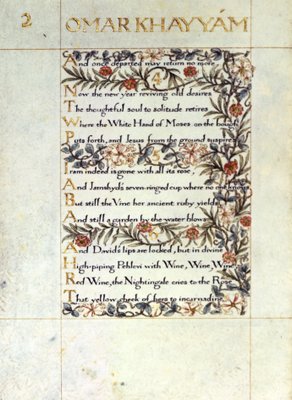 2 OMAR KHAYYÁM
And once departed may return no more
4
Now the new year reviving old desires
The thoughtful soul to solitude retires
Where the White Hand of Moses on the bough
Puts forth, and Jesus from the ground suspires
5
Iram indeed is gone with all its rose,
And Jamshyd's seven-ringed cup where no one knows
But still the Vine her ancient ruby yields
And still a garden by the water blows
And David's lips are locked, but in divine
High-piping Pehlevi with Wine, Wine, Wine
Red Wine, the Nightingale cries to the Rose
That yellow cheek of hers to incarnadine